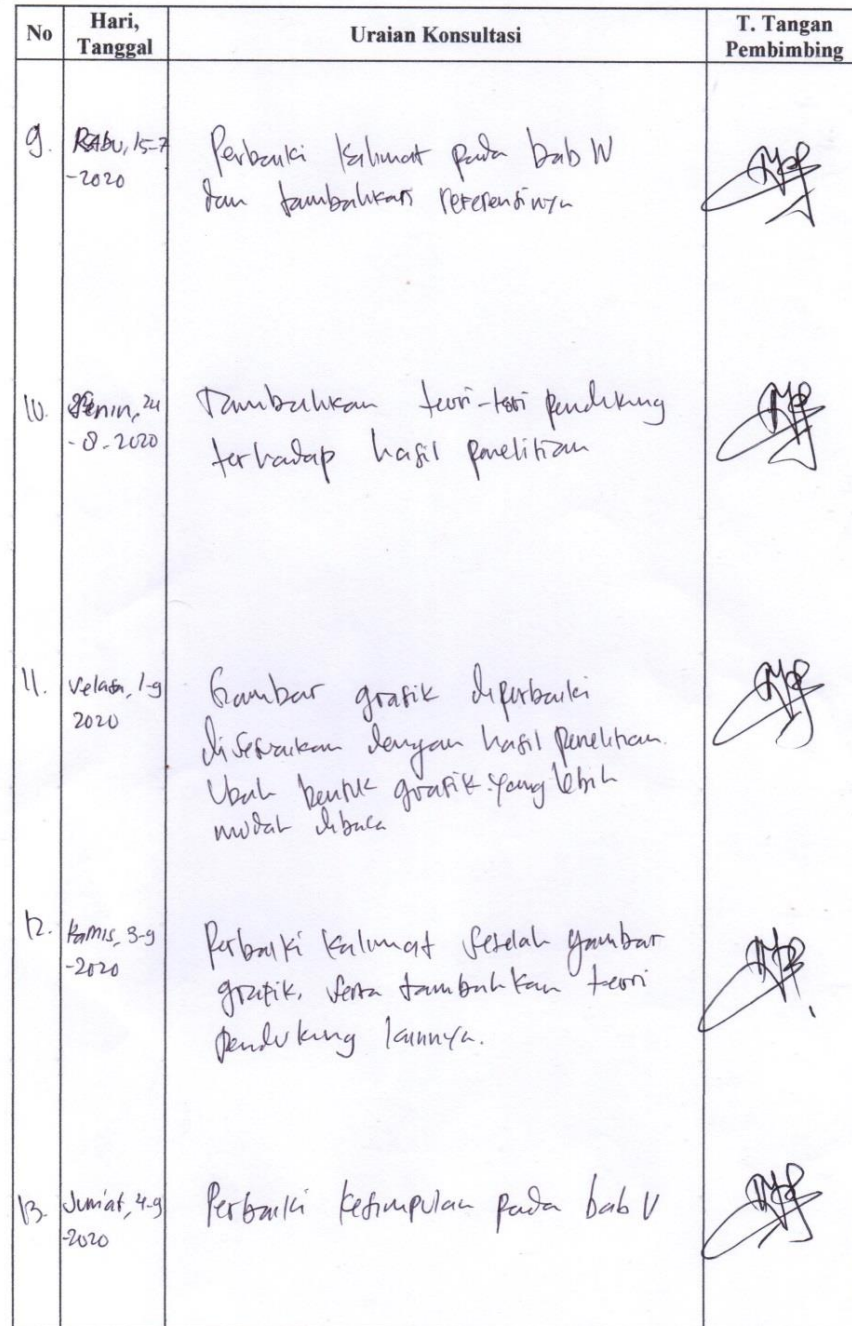 No
Hari,
Tanggal
Uraian Konsultasi
T. Tangan
Pembimbing
9.
Rabu, 15-7
-2020
Perbaiki kalimat pada bab IV
dan tambahkan referensinya
10.
Senin, 24
-8-2020
Tambahkan teori-teori pendukung
terhadap hasil penelitian
11.
Selasa, 1-9
2020
Gambar grafik diperbaiki
disesuaikan dengan hasil penelitian.
Ubah bentuk grafik yang lebih
mudah dibaca
12.
Kamis, 3-9
-2020
Perbaiki kalimat setelah gambar
grafik, serta tambahkan teori
pendukung lainnya.
13.
Jumat, 4-9
-2020
Perbaiki kesimpulan pada bab V